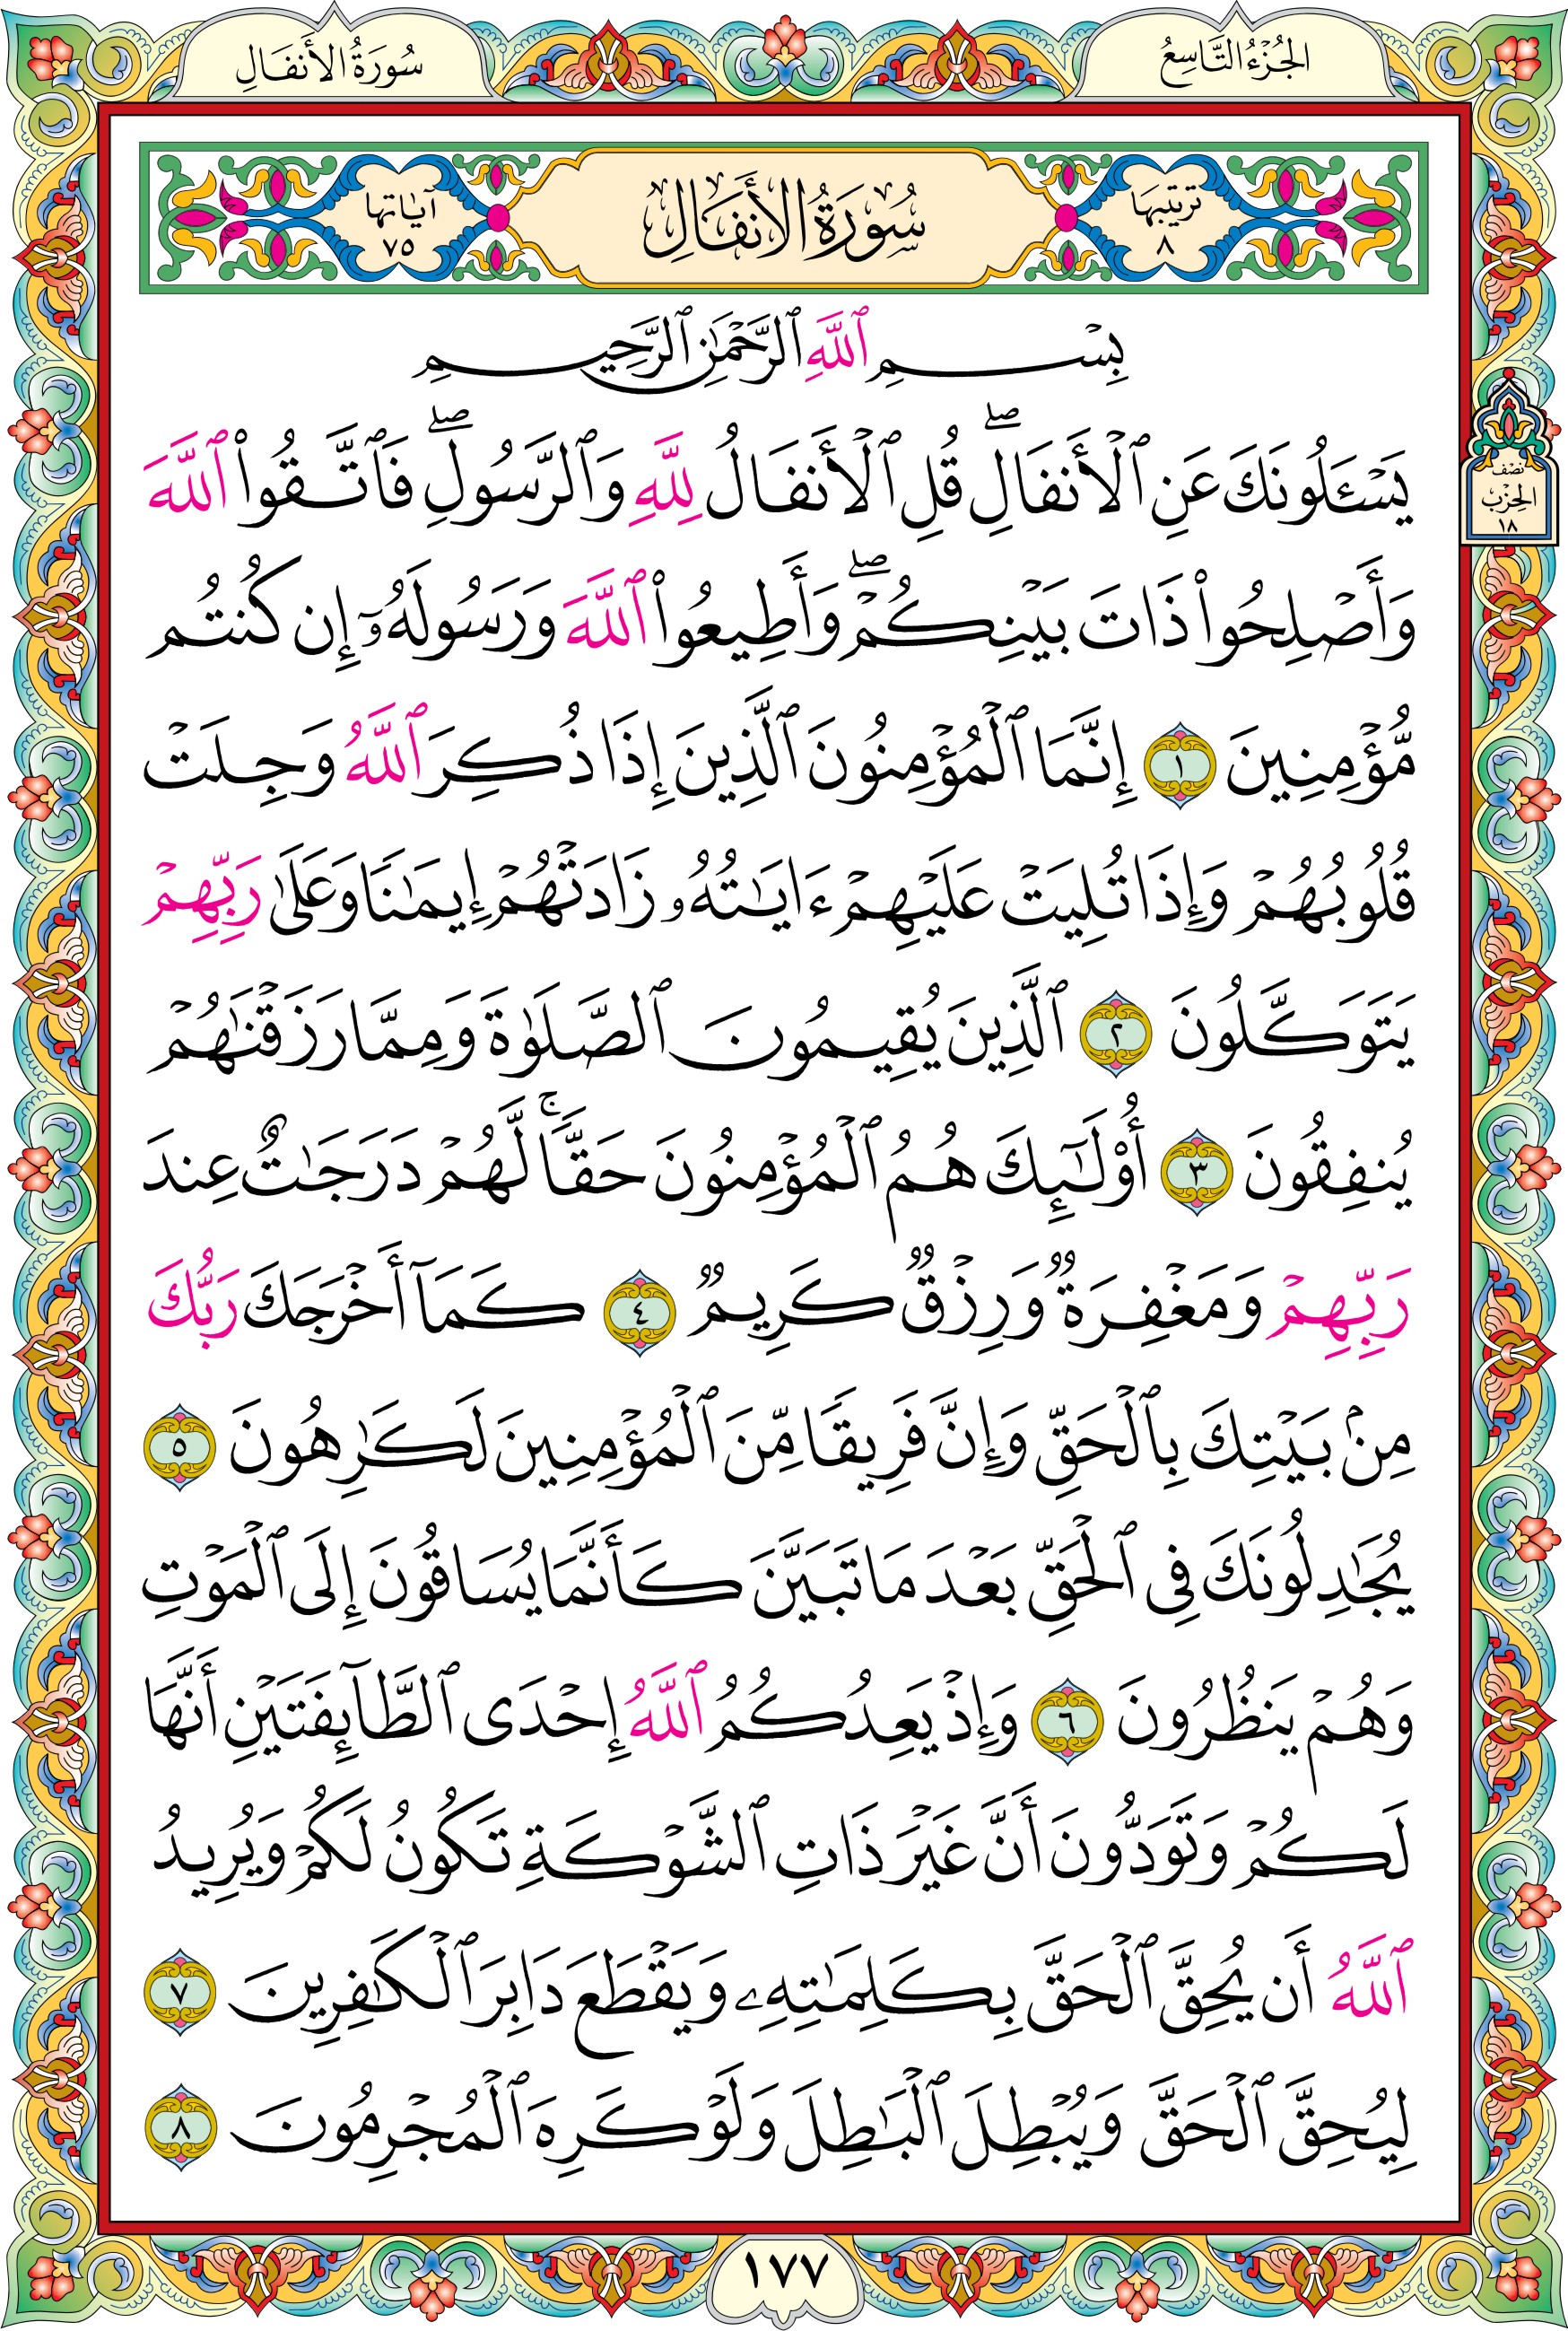 الجُزْءُ التَّاسِعُ
سُورَةُ الأَنفَالِ
ترتيبها ٨
سُورَةُ الأَنفَالِ
آياتها ٧٥
بِسْمِ ٱللَّهِ ٱلرَّحْمَٰنِ ٱلرَّحِيمِ
يَسْـَٔلُونَكَ عَنِ ٱلْأَنفَالِۖ قُلِ ٱلْأَنفَالُ لِلَّهِ وَٱلرَّسُولِۖ فَٱتَّقُوا۟ ٱللَّهَ
نصف الحزب ١٨
وَأَصْلِحُوا۟ ذَاتَ بَيْنِكُمْۖ وَأَطِيعُوا۟ ٱللَّهَ وَرَسُولَهُۥٓ إِن كُنتُم
مُّؤْمِنِينَ ١ إِنَّمَا ٱلْمُؤْمِنُونَ ٱلَّذِينَ إِذَا ذُكِرَ ٱللَّهُ وَجِلَتْ
قُلُوبُهُمْ وَإِذَا تُلِيَتْ عَلَيْهِمْ ءَايَٰتُهُۥ زَادَتْهُمْ إِيمَٰنًا وَعَلَىٰ رَبِّهِمْ
يَتَوَكَّلُونَ ٢ ٱلَّذِينَ يُقِيمُونَ ٱلصَّلَوٰةَ وَمِمَّا رَزَقْنَٰهُمْ
يُنفِقُونَ ٣ أُو۟لَٰٓئِكَ هُمُ ٱلْمُؤْمِنُونَ حَقًّاۚ لَّهُمْ دَرَجَٰتٌ عِندَ
رَبِّهِمْ وَمَغْفِرَةٌ وَرِزْقٌ كَرِيمٌ ٤ كَمَآ أَخْرَجَكَ رَبُّكَ
مِنۢ بَيْتِكَ بِٱلْحَقِّ وَإِنَّ فَرِيقًا مِّنَ ٱلْمُؤْمِنِينَ لَكَٰرِهُونَ ٥
يُجَٰدِلُونَكَ فِى ٱلْحَقِّ بَعْدَ مَا تَبَيَّنَ كَأَنَّمَا يُسَاقُونَ إِلَى ٱلْمَوْتِ
وَهُمْ يَنظُرُونَ ٦ وَإِذْ يَعِدُكُمُ ٱللَّهُ إِحْدَى ٱلطَّآئِفَتَيْنِ أَنَّهَا
لَكُمْ وَتَوَدُّونَ أَنَّ غَيْرَ ذَاتِ ٱلشَّوْكَةِ تَكُونُ لَكُمْ وَيُرِيدُ
ٱللَّهُ أَن يُحِقَّ ٱلْحَقَّ بِكَلِمَٰتِهِۦ وَيَقْطَعَ دَابِرَ ٱلْكَٰفِرِينَ ٧
لِيُحِقَّ ٱلْحَقَّ وَيُبْطِلَ ٱلْبَٰطِلَ وَلَوْ كَرِهَ ٱلْمُجْرِمُونَ ٨
١٧٧